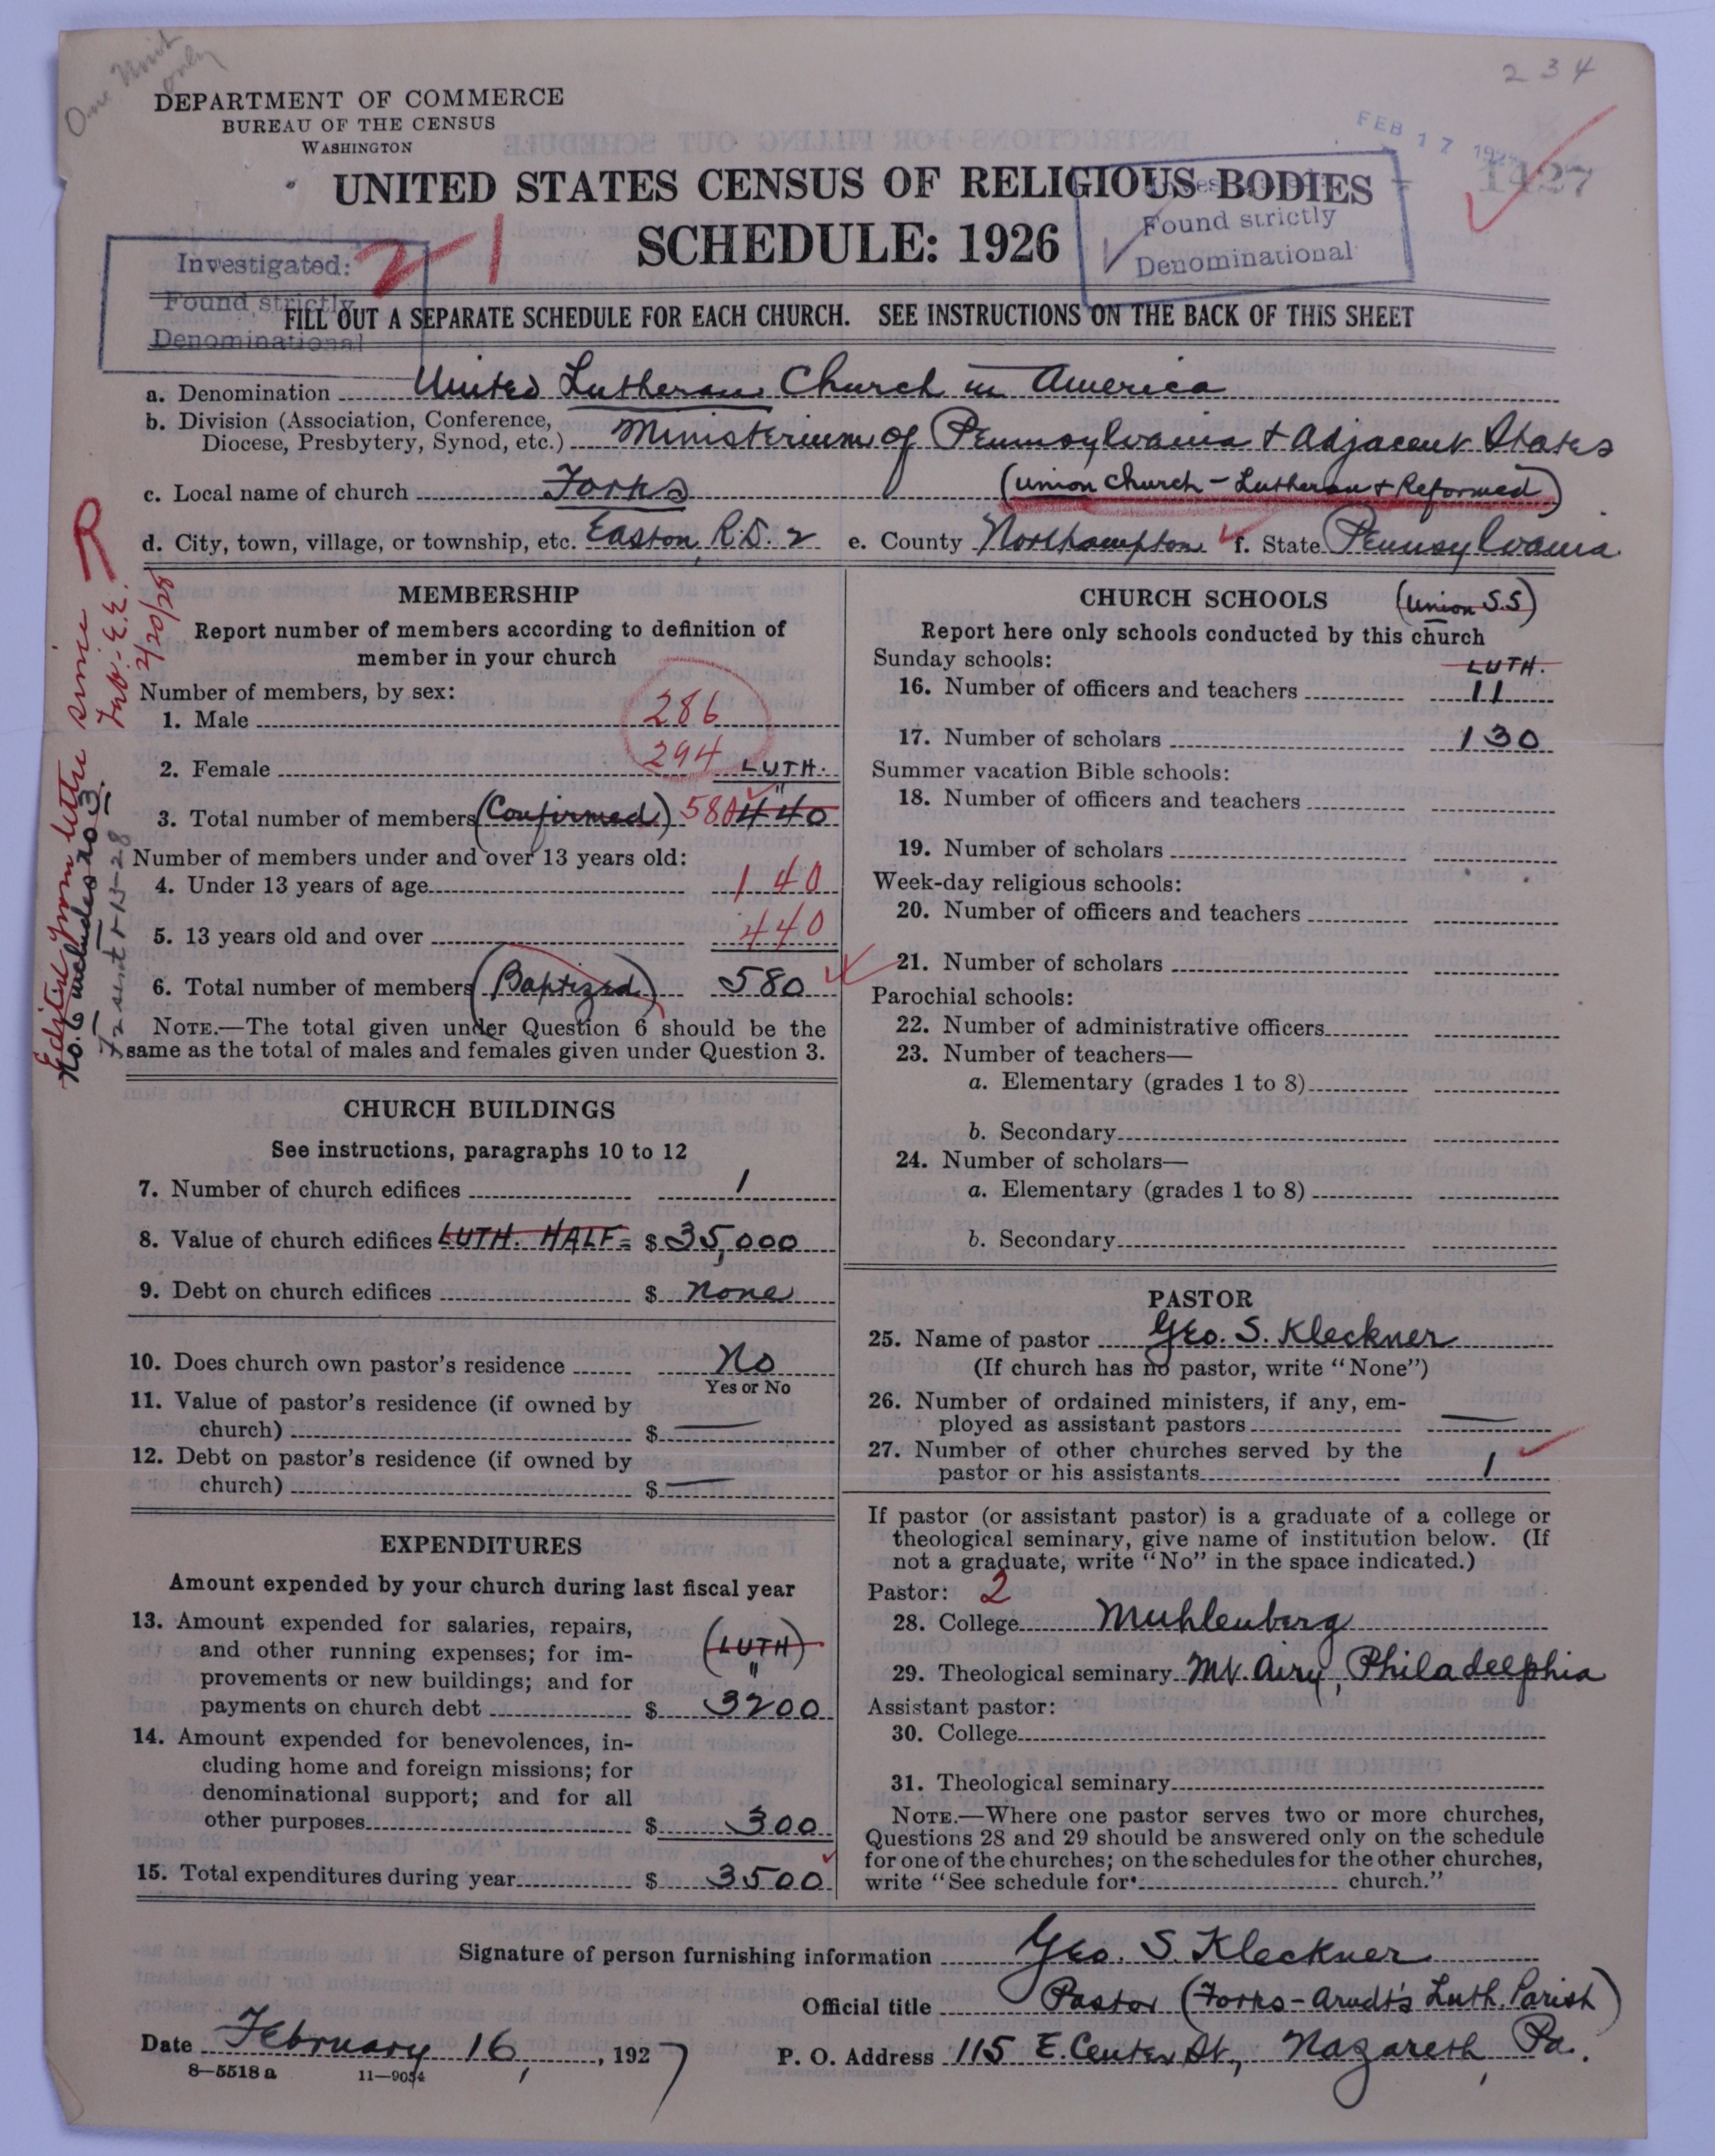 One Unit
only
234
DEPARTMENT OF COMMERCE
BUREAU OF THE CENSUS
WASHINGTON
FEB 17 192
1427
UNITED STATES CENSUS OF RELIGIOUS BODIES
SCHEDULE: 1926
Found strictly
Denominational
Investigated:
Found strictly
Denominational
21
FILL OUT A SEPARATE SCHEDULE FOR EACH CHURCH. SEE INSTRUCTIONS ON THE BACK OF THIS SHEET
a. Denomination United Lutheran Church in America
b. Division (Association, Conference, Diocese, Presbytery, Synod, etc.) Ministerium of Pennsylvania + Adjacent States
c. Local name of church Forks (Union Church - Lutheran + Reformed)
d. City, town, village, or township, etc. Easton, R.D. 2 e. County Northampton f. State Pennsylvania
R
Edited from letter since
Inv. - E.E.
2/20/28
No. 6 includes no 3.
MEMBERSHIP
Report number of members according to definition of
member in your church
Number of members, by sex:
1. Male 286
2. Female 294 LUTH.
3. Total number of members (Confirmed) 580 440
Number of members under and over 13 years old:
4. Under 13 years of age 140
5. 13 years old and over 440
6. Total number of members (Baptized) 580
NOTE.—The total given under Question 6 should be the
same as the total of males and females given under Question 3.
CHURCH BUILDINGS
See instructions, paragraphs 10 to 12
7. Number of church edifices 1
8. Value of church edifices LUTH. HALF = $ 35,000
9. Debt on church edifices $ none
10. Does church own pastor's residence No
Yes or No
11. Value of pastor's residence (if owned by
church) $ —
12. Debt on pastor's residence (if owned by
church) $ —
EXPENDITURES
Amount expended by your church during last fiscal year
13. Amount expended for salaries, repairs,
and other running expenses; for im-
provements or new buildings; and for
payments on church debt (LUTH) " $ 3200
14. Amount expended for benevolences, in-
cluding home and foreign missions; for
denominational support; and for all
other purposes $ 300
15. Total expenditures during year $ 3500
CHURCH SCHOOLS (Union S.S)
Report here only schools conducted by this church
Sunday schools: LUTH.
16. Number of officers and teachers 11
17. Number of scholars 130
Summer vacation Bible schools:
18. Number of officers and teachers
19. Number of scholars
Week-day religious schools:
20. Number of officers and teachers
21. Number of scholars
Parochial schools:
22. Number of administrative officers
23. Number of teachers—
a. Elementary (grades 1 to 8)
b. Secondary
24. Number of scholars—
a. Elementary (grades 1 to 8)
b. Secondary
PASTOR
25. Name of pastor Geo. S. Kleckner
(If church has no pastor, write "None")
26. Number of ordained ministers, if any, em-
ployed as assistant pastors —
27. Number of other churches served by the
pastor or his assistants 1
If pastor (or assistant pastor) is a graduate of a college or
theological seminary, give name of institution below. (If
not a graduate, write "No" in the space indicated.)
Pastor: 2
28. College Muhlenberg
29. Theological seminary Mt. Airy, Philadelphia
Assistant pastor:
30. College
31. Theological seminary
NOTE.—Where one pastor serves two or more churches,
Questions 28 and 29 should be answered only on the schedule
for one of the churches; on the schedules for the other churches,
write "See schedule for church."
Signature of person furnishing information Geo. S. Kleckner
Official title Pastor (Forks - Arndt's Luth. Parish)
Date February 16, 1927 P. O. Address 115 E. Center St., Nazareth, Pa.
8—5518a 11—9054